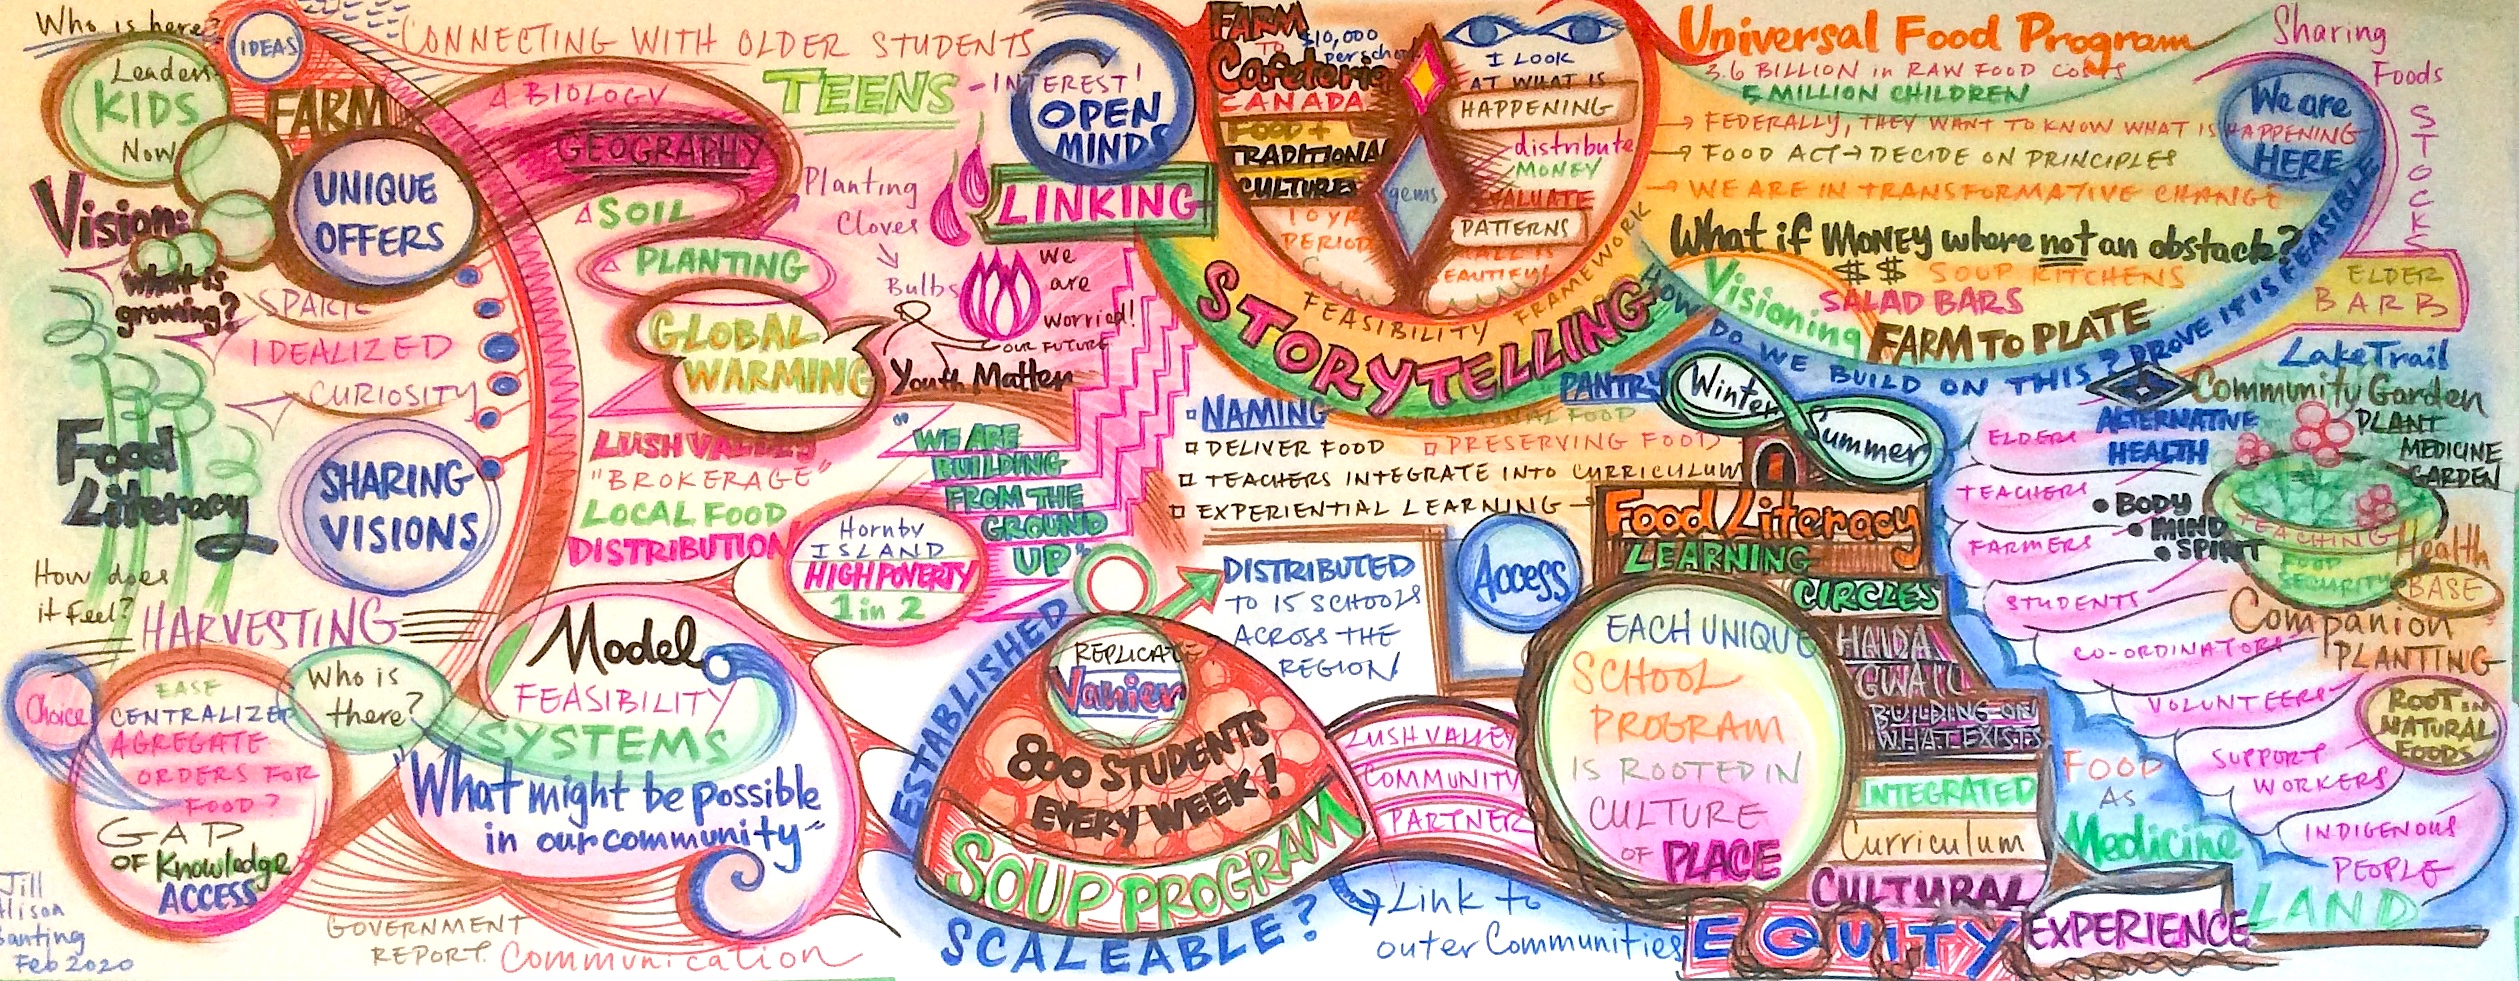 Who is here?
Leaders
KIDS
Now
IDEAS
FARM
UNIQUE
OFFERS
Vision:
what is
growing?
SPARK
IDEALIZED
CURIOSITY
Food
Literacy
SHARING
VISIONS
How does
it feel?
HARVESTING
Choice
EASE
CENTRALIZED
AGREGATE
ORDERS FOR
FOOD?
GAP
OF Knowledge
ACCESS
Who is
there?
Jill
Alison
Banting
Feb 2020
CONNECTING WITH OLDER STUDENTS
TEENS - INTEREST!
BIOLOGY
GEOGRAPHY
SOIL
PLANTING
GLOBAL
WARMING
Planting
Cloves
Bulbs
We
are
worried!
OUR FUTURE
Youth Matter
OPEN
MINDS
LINKING
LUSH VALLEY
"BROKERAGE"
LOCAL FOOD
DISTRIBUTION
"WE ARE
BUILDING
FROM THE
GROUND
UP"
Hornby
ISLAND
HIGH POVERTY
1 in 2
Model
FEASIBILITY
SYSTEMS
"What might be possible
in our community"
GOVERNMENT
REPORT.
Communication
FARM
TO
Cafeteria
CANADA
$10,000
per school
FOOD +
TRADITIONAL
CULTURE
10 YR
PERIOD
gems
I LOOK
AT WHAT IS
HAPPENING
distribute
MONEY
EVALUATE
PATTERNS
FEASIBILITY FRAMEWORK
STORYTELLING
NAMING
DELIVER FOOD
PRESERVING FOOD
TEACHERS INTEGRATE INTO CURRICULUM
EXPERIENTIAL LEARNING
PANTRY
Winter
Summer
DISTRIBUTED
TO 15 SCHOOLS
ACROSS THE
REGION!
Access
ESTABLISHED
REPLICATE
Vanier
800 STUDENTS
EVERY WEEK!
SOUP PROGRAM
SCALEABLE?
LUSH VALLEY
COMMUNITY
PARTNER
Link to
outer Communities
Universal Food Program
3.6 BILLION in RAW FOOD COSTS
5 MILLION CHILDREN
FEDERALLY, THEY WANT TO KNOW WHAT IS HAPPENING
FOOD ACT → DECIDE ON PRINCIPLES
WE ARE IN TRANSFORMATIVE CHANGE
What if MONEY where not an obstacle?
$ $ SOUP KITCHENS
Visioning
SALAD BARS
FARM TO PLATE
HOW DO WE BUILD ON THIS? PROVE IT IS FEASIBLE
We are
HERE
Sharing
Foods
STOCKS
ELDER
BARB
Food Literacy
LEARNING
CIRCLES
EACH UNIQUE
SCHOOL
PROGRAM
IS ROOTED IN
CULTURE
OF PLACE
HAIDA
GWAII
BUILDING ON
WHAT EXISTS
INTEGRATED
Curriculum
CULTURAL
EQUITY
EXPERIENCE
LAND
Lake Trail
Community Garden
ALTERNATIVE
HEALTH
• BODY
• MIND
• SPIRIT
PLANT
MEDICINE
GARDEN
TEACHING
FOOD
SECURITY
Health
BASE
Companion
PLANTING
ROOT IN
NATURAL
FOODS
ELDERS
TEACHERS
FARMERS
STUDENTS
CO-ORDINATORS
VOLUNTEERS
SUPPORT
WORKERS
INDIGENOUS
PEOPLE
FOOD
AS
Medicine